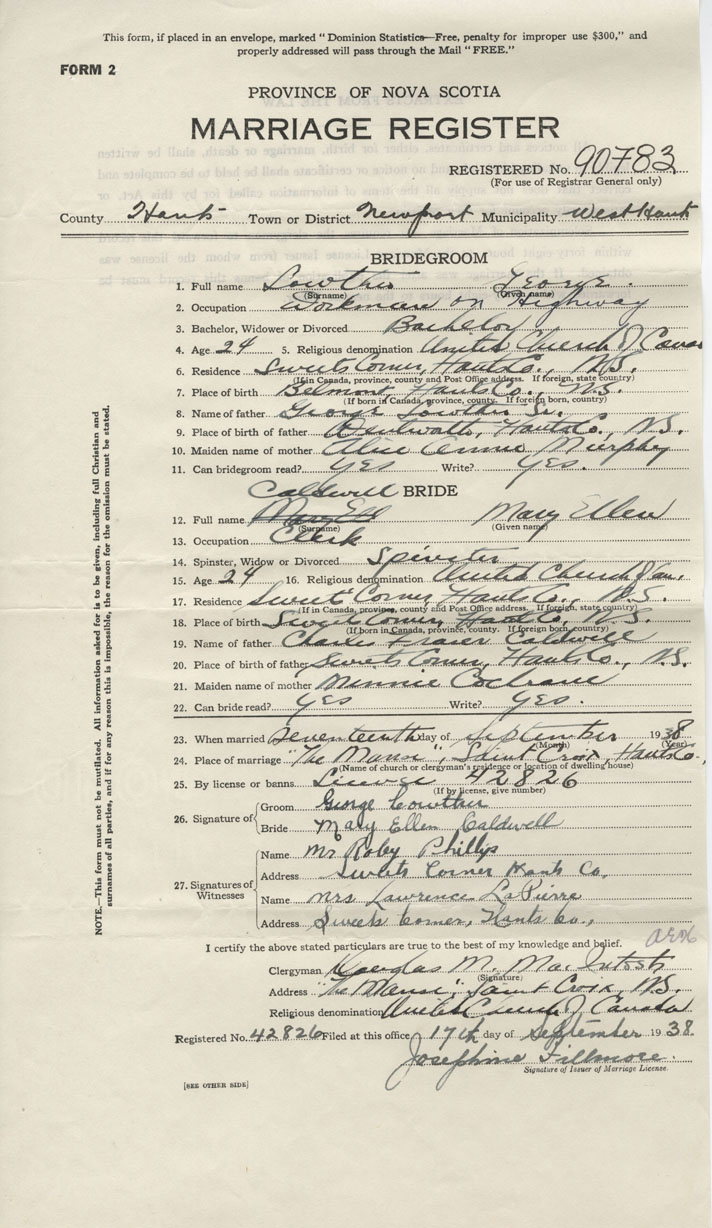 This form, if placed in an envelope, marked "Dominion Statistics—Free, penalty for improper use $300," and
properly addressed will pass through the Mail "FREE."
FORM 2
PROVINCE OF NOVA SCOTIA
MARRIAGE REGISTER
REGISTERED No. 90783
(For use of Registrar General only)
County Hants Town or District Newport Municipality West Hants
BRIDEGROOM
1. Full name Lowther George
(Surname) (Given name)
2. Occupation Workman on Highway
3. Bachelor, Widower or Divorced Bachelor
4. Age 24 5. Religious denomination United Church of Canada
6. Residence Sweets Corner, Hants Co., N.S.
(If in Canada, province, county and Post Office address. If foreign, state country)
7. Place of birth Belmont, Hants Co., N.S.
(If born in Canada, province, county. If foreign born, country)
8. Name of father George Lowther Sr.
9. Place of birth of father Wentworth, Hants Co., N.S.
10. Maiden name of mother Alice Annie Murphy
11. Can bridegroom read? Yes Write? Yes.
BRIDE
Caldwell
12. Full name Mary Ell Mary Ellen
(Surname) (Given name)
13. Occupation Clerk
14. Spinster, Widow or Divorced Spinster
15. Age 24 16. Religious denomination United Church of Can.
17. Residence Sweets Corner, Hants Co., N.S.
(If in Canada, province, county and Post Office address. If foreign, state country)
18. Place of birth Sweets Corner, Hants Co., N.S.
(If born in Canada, province, county. If foreign born, country)
19. Name of father Charles Fraser Caldwell
20. Place of birth of father Sweets Corner, Hants Co., N.S.
21. Maiden name of mother Minnie Cochrane
22. Can bride read? Yes Write? Yes.
23. When married Seventeenth day of September 1938
(Month) (Year)
24. Place of marriage "The Manse", Saint Croix, Hants Co.,
(Name of church or clergyman's residence or location of dwelling house)
25. By license or banns License 42826
(If by license, give number)
26. Signature of
Groom George Lowther
Bride Mary Ellen Caldwell
27. Signatures of Witnesses
Name Mr Roby Phillips
Address Sweets Corner Hants Co.
Name Mrs Lawrence LaPierre
Address Sweets Corner, Hants Co.,
I certify the above stated particulars are true to the best of my knowledge and belief.
Clergyman Douglas M. MacIntosh
(Signature)
Address "The Manse", Saint Croix, N.S.
Religious denomination United Church of Canada
Registered No. 42826 Filed at this office 17th day of September 1938.
Josephine Fillmore.
Signature of Issuer of Marriage License.
[SEE OTHER SIDE]
NOTE.—This form must not be mutilated. All information asked for is to be given, including full Christian and
surnames of all parties, and if for any reason this is impossible, the reason for the omission must be stated.